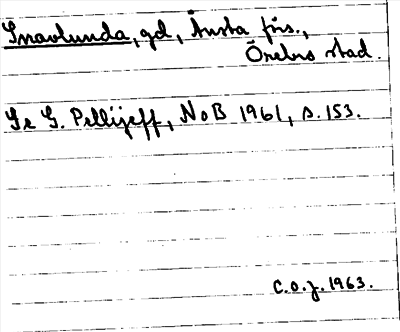 Snavlunda, gd, Ånsta förs.,
Örebro stad.
Se G. Pellijeff, NoB 1961, s. 153.
C.O.J. 1963.